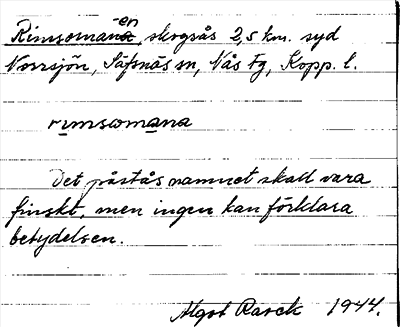 Rimsomanen, skogsås 2,5 km. syd
Norrsjön, Säfsnäs sn, Nås Fg, Kopp. l.
rimsomana
Det påstås namnet skall vara
finskt, men ingen kan förklara
betydelsen.
Algot Rarek 1944.